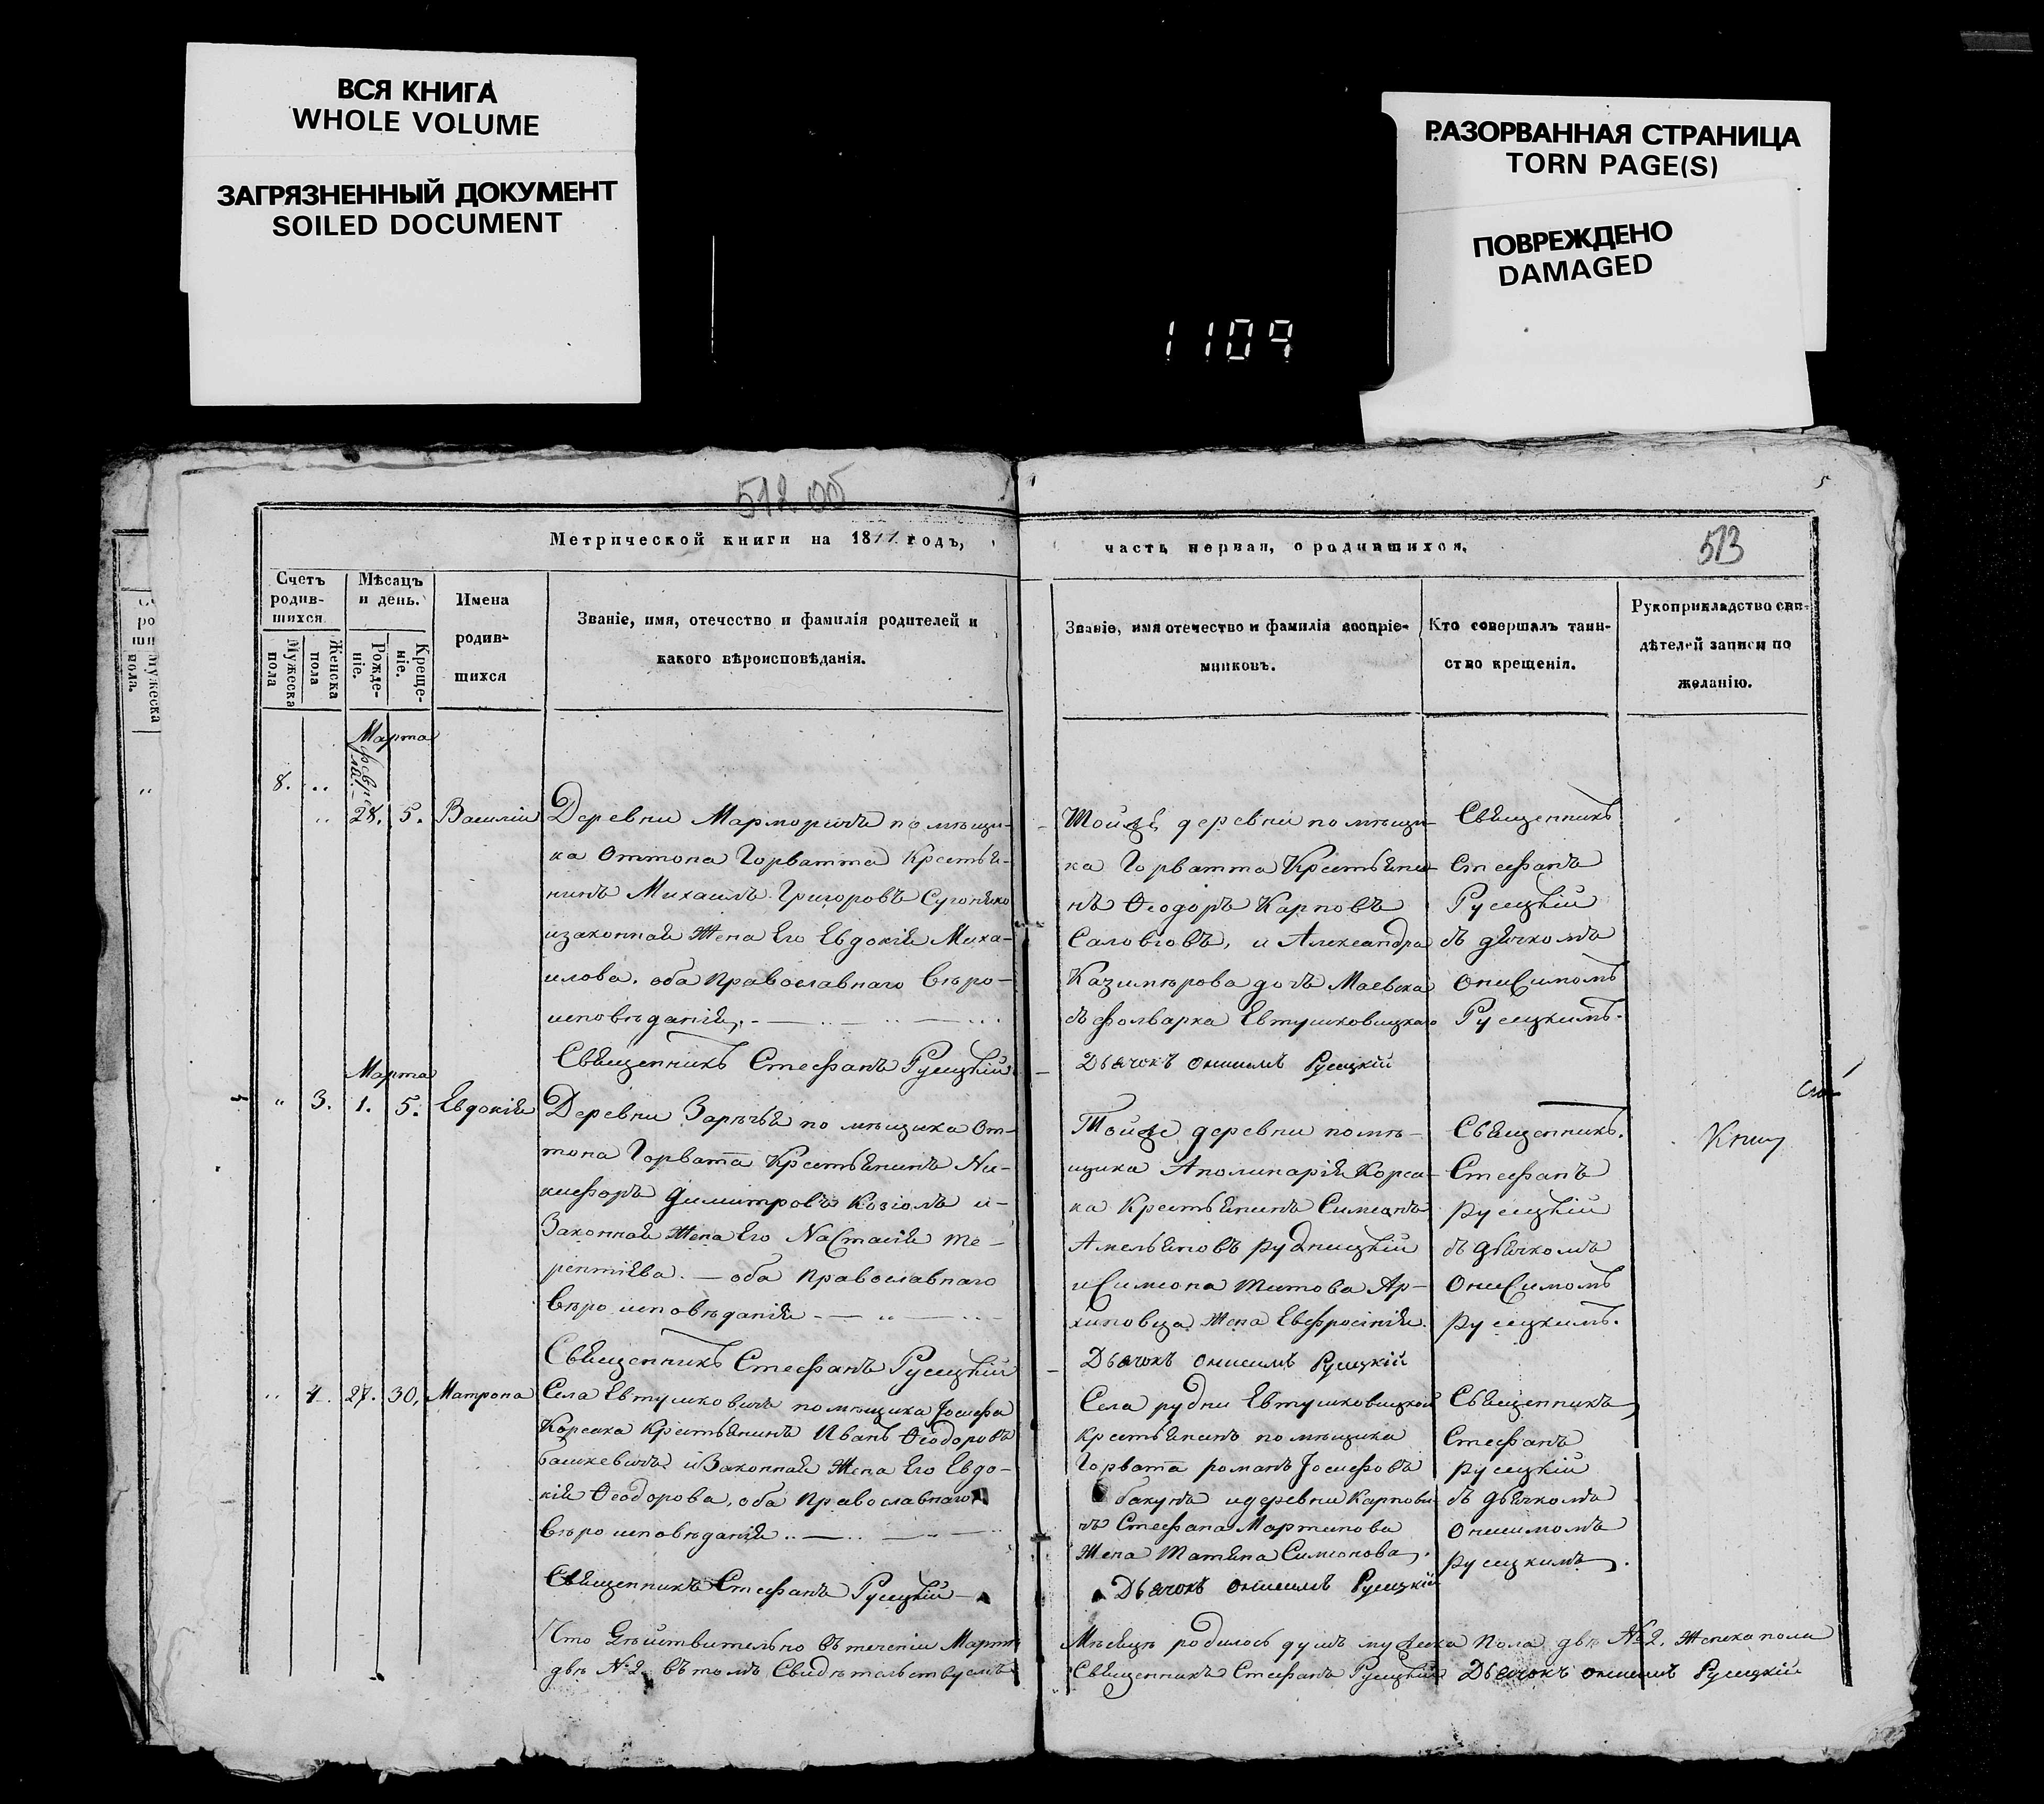 ВСЯ КНИГА
WHOLE VOLUME
ЗАГРЯЗНЕННЫЙ ДОКУМЕНТ
SOILED DOCUMENT
РАЗОРВАННАЯ СТРАНИЦА
TORN PAGE(S)
ПОВРЕЖДЕНО
DAMAGED
1109
512 об
513
Метрической книги на 18 годъ,
часть первая, о родившихся.
Счетъ родив-шихся
Мужеска пола
Женска пола
Мѣсяцъ и день.
Рожде-ніе.
Креще-ніе.
Имена родив-шихся
Званіе, имя, отечество и фамилія родителей и
какого вѣроисповѣданія.
Званіе, имя отечество и фамилія воспріе-
мниковъ.
Кто совершалъ таин-
ство крещенія.
Рукоприкладство сви-
дѣтелей записи по
желанію.
Марта
8. 28. 5. Василій
Деревни помѣщи-
ка Оттона Горватта Крестья-
нинъ Михаилъ Григоровъ
изаконная Жена Его Евдокія Миха-
илова. оба Православнаго Вѣро-
исповѣданія.
Священникъ Стефанъ Русецкій
Тойже деревни помѣщи-
ка Горватта Крестьяни-
нъ Ѳеодоръ Карповъ
Саловіовъ, и Александра
Казимѣрова дочь Маевска
съ фольварка Евтушковицкаго
Дьячокъ Онисимъ Русецкій
Священникъ
Стефанъ
Русецкій
съ дьячкомъ
Онисимомъ
Русецкимъ.
Марта
" 3. 1. 5. Евдокія
Деревни Зарѣчья помѣщика От-
тона Горвата Крестьянинъ Ни-
кифоръ Димитровъ Козіолъ и
Законная Жена Его Настасія Те-
рентіева. — оба Православнаго
Вѣроисповѣданія
Священникъ Стефанъ Русецкій
Тойже деревни помѣ-
щика Аполинарія Корса-
ка Крестьянинъ Симеонъ
Амельяновъ Рудницкій
и Симеона Титова Ар-
хиповца Жена Евфросинія.
Дьячокъ Онисимъ Русецкій
Священникъ.
Стефанъ
Русецкій
съ дьячкомъ
Онисимомъ
Русецкимъ.
4. 27. 30. Матрона
Села Евтушковичъ помѣщика Іосифа
Корсака Крестьянинъ Иванъ Ѳеодоровъ
башкевичъ и Законная Жена Его Евдо-
кія Ѳеодорова, оба Православнаго
Вѣроисповѣданія
Священникъ Стефанъ Русецкій
Села рудни Евтушковицкой
крестьянинъ помѣщика
Горвата романъ Іосифовъ
бакунъ идеревни Карпови-
чъ Стефана Мартинова
Жена Татяна Симеонова.
Дьячокъ Онисимъ Русецкій
Священникъ
Стефанъ
Русецкій
съ дьячкомъ
Онисимомъ
Русецкимъ.
Что Дѣйствительно въ теченіи Марта
Мѣсяцѣ родилось душъ мужеска пола двѣ №2. Женска пола
двѣ №2. въ томъ Свидѣтельствуемъ
Священникъ Стефанъ Русецкій Дьячокъ Онисимъ Русецкій